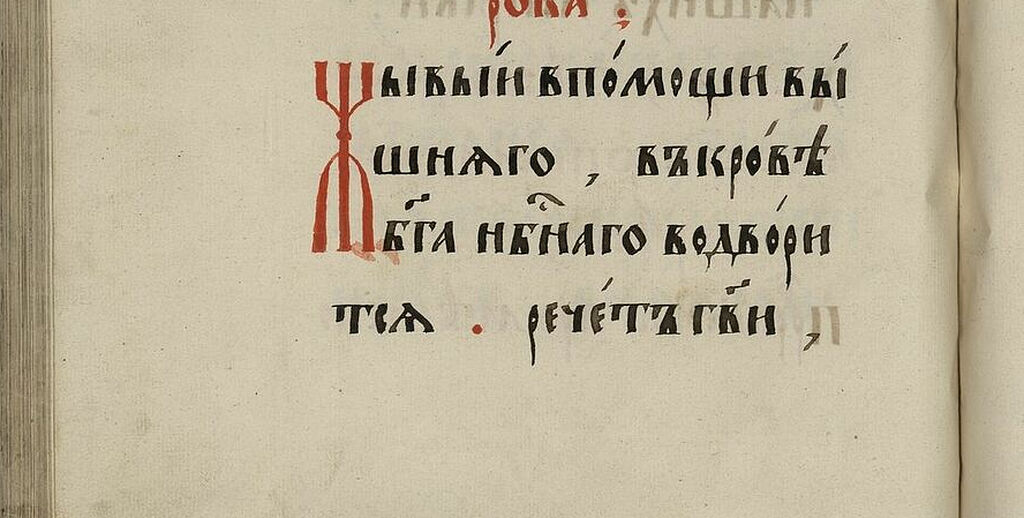 рова :
Жывы́и впо́мощи вы́
шнѧго , въкро́вѣ
бг҃а нбн҃аго водво́ри
тсѧ . рече́тъ гв҃и ,